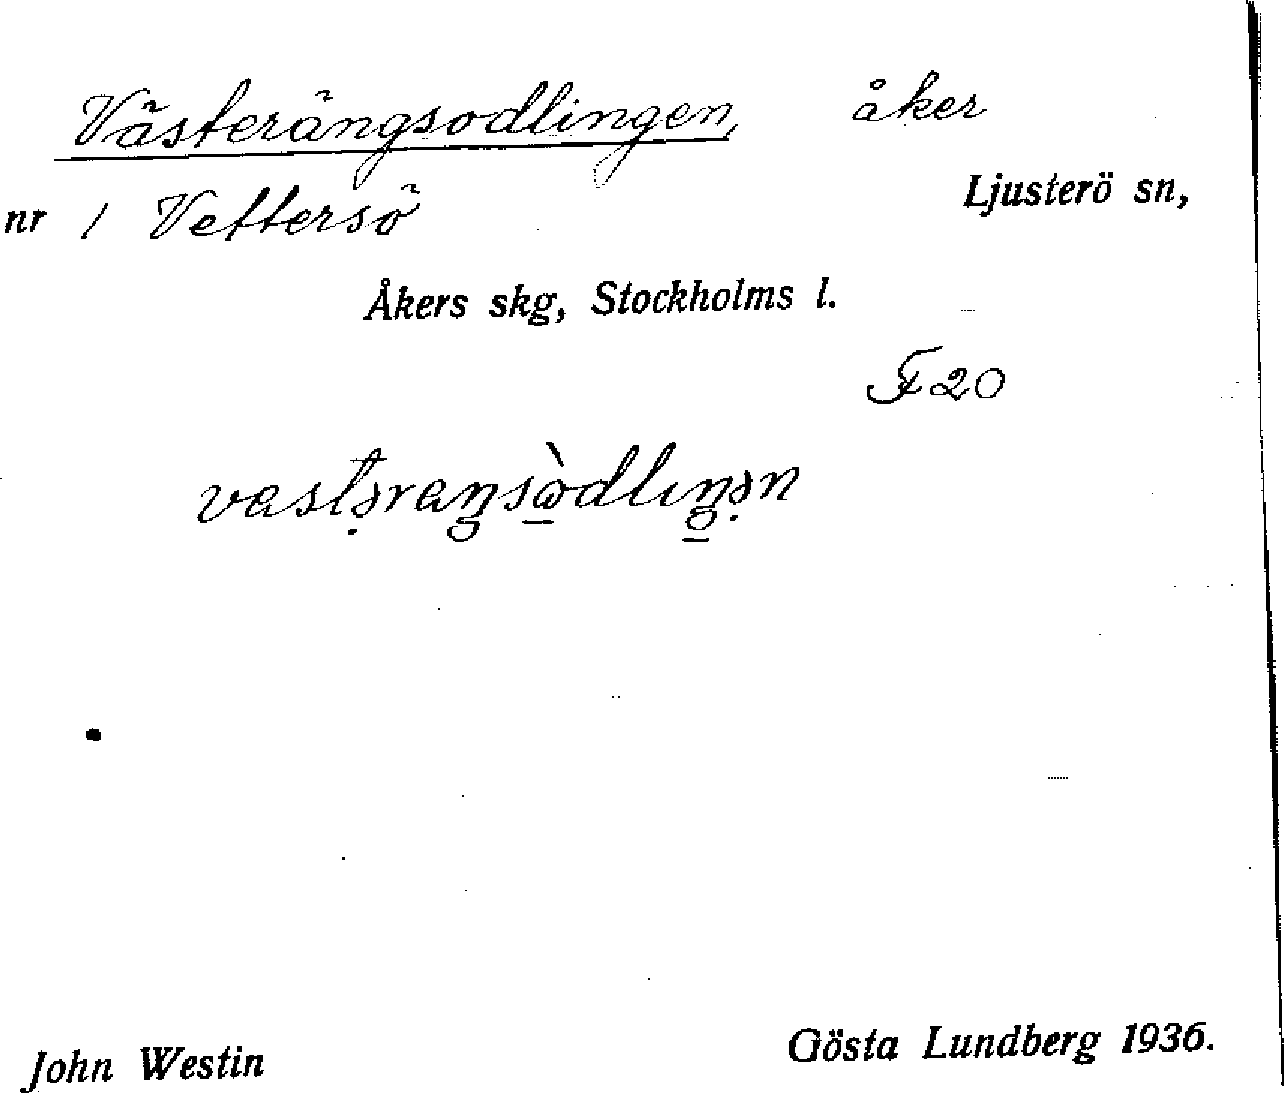 Västerängsodlingen, åker
nr 1 Vettersö Ljusterö sn,
Åkers skg, Stockholms l.
F20
John Westin Gösta Lundberg 1936.